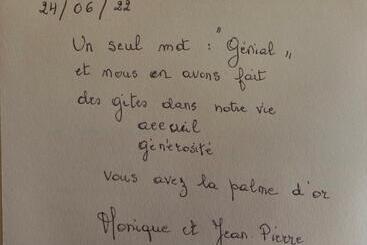 24/06/22
Un seul mot : "Génial"
et nous en avons fait
des gîtes dans notre vie
accueil
générosité
vous avez la palme d'or
Monique et Jean Pierre